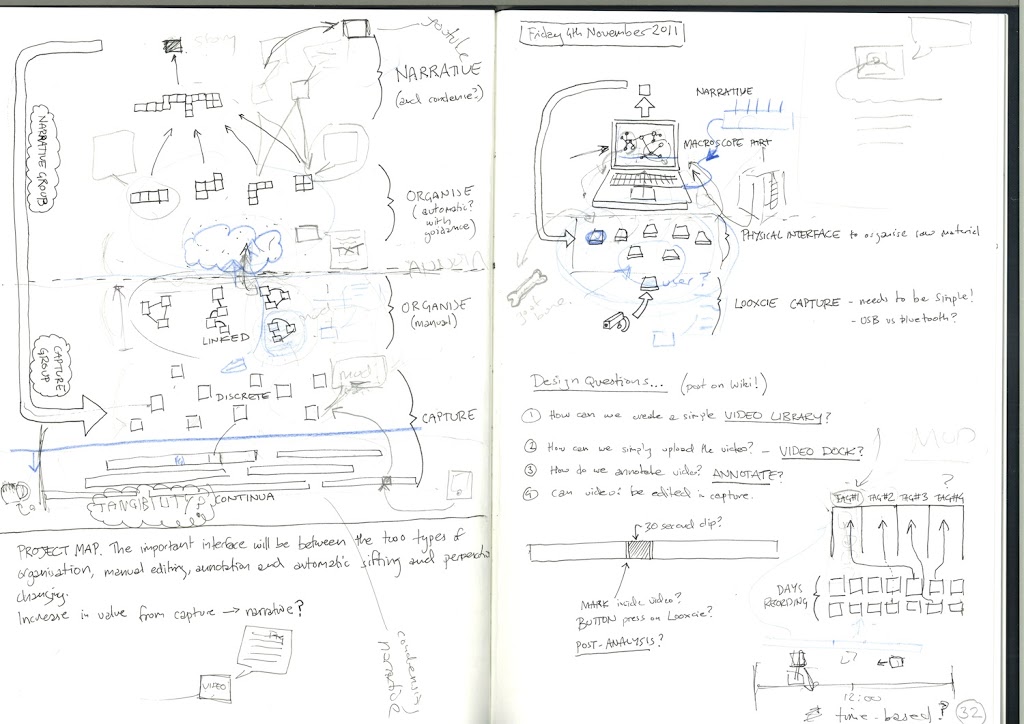 story
youtube
NARRATIVE
(and condense?)
NARRATIVE GROUP
ORGANISE
(automatic?
with
guidance)
TXT
ORGANISE
(manual)
LINKED
CAPTURE
GROUP
DISCRETE
CAPTURE
TANGIBILITY?
CONTINUA
PROJECT MAP. The important interface will be between the two types of
organisation, manual editing, annotation and automatic sifting and
changing.
Increase in value from capture → narrative?
VIDEO
condensing
narrative
Friday 4th November 2011
NARRATIVE
MACROSCOPE ART
PHYSICAL INTERFACE to organise raw material
user?
LOOXCIE CAPTURE - needs to be simple!
- USB vs bluetooth?
Design Questions... (post on Wiki!)
① How can we create a simple VIDEO LIBRARY?
② How can we simply upload the video? - VIDEO DOCK?
③ How do we annotate video? ANNOTATE?
④ Can video be edited in capture.
?
TAG#1 TAG#2 TAG#3 TAG#4
30 second clip?
MARK inside video?
BUTTON press on Looxcie?
POST-ANALYSIS?
DAYS
RECORDING
12:00
time-based?
32